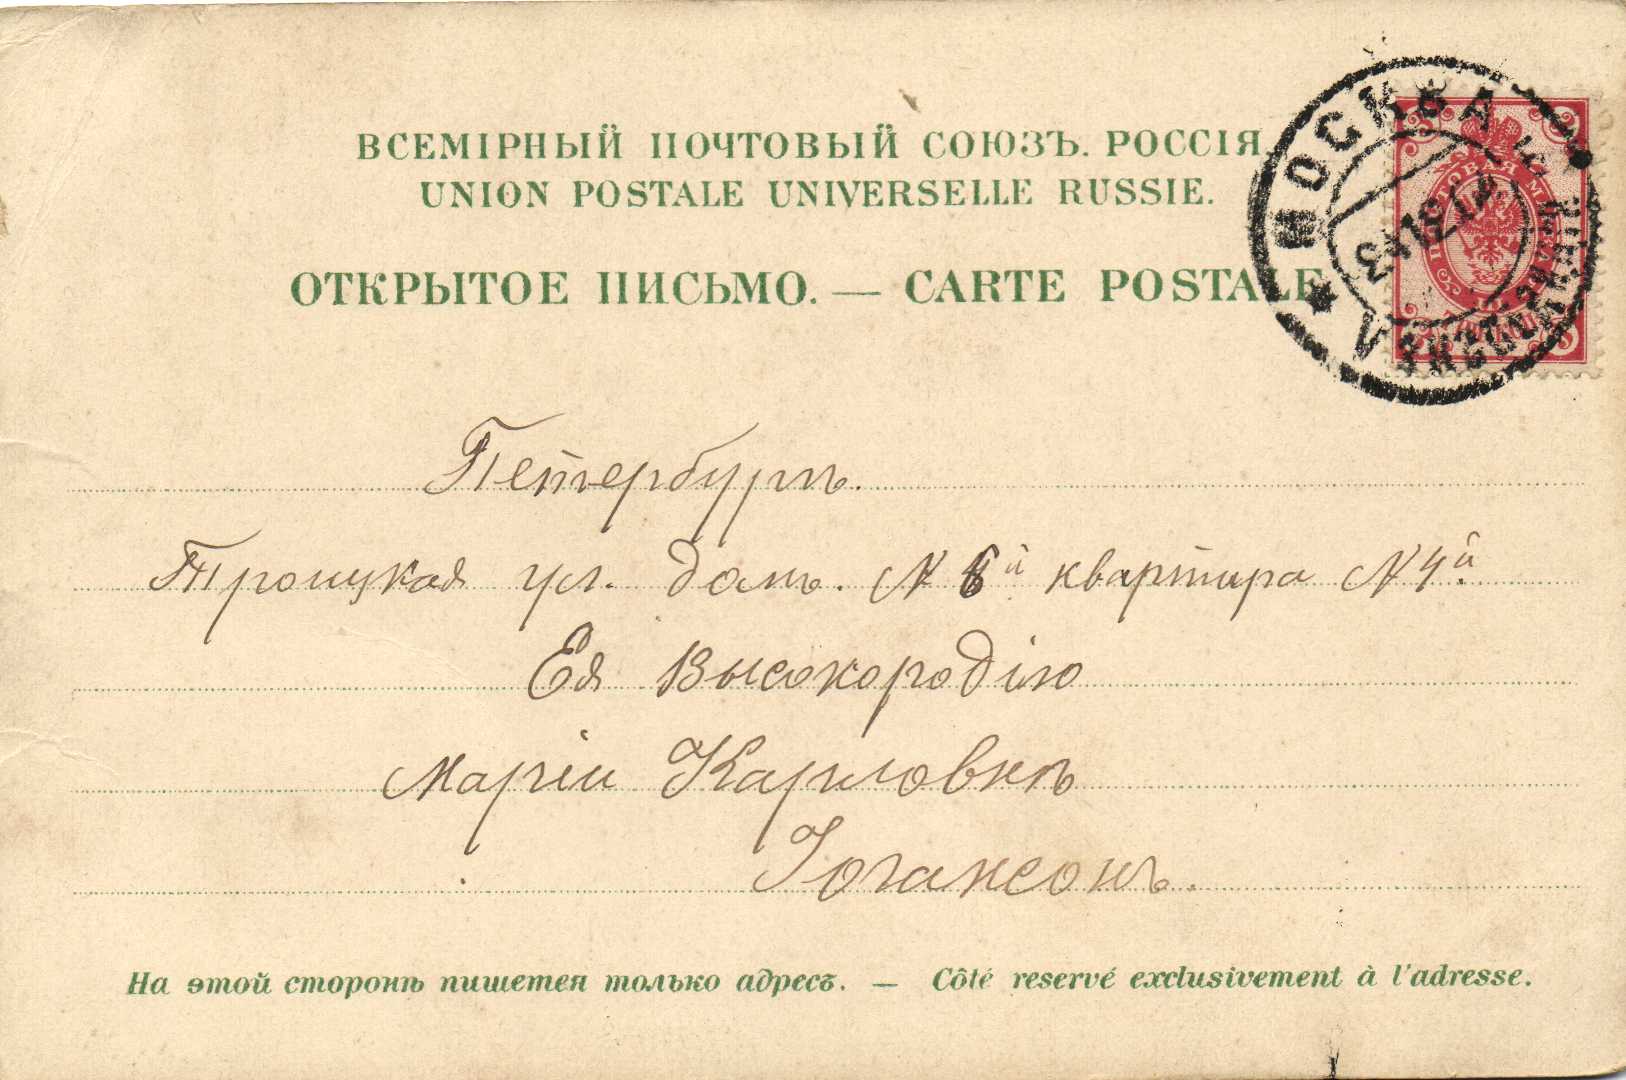 ВСЕМІРНЫЙ ПОЧТОВЫЙ СОЮЗЪ. РОССІЯ.
UNION POSTALE UNIVERSELLE RUSSIE.
ОТКРЫТОЕ ПИСЬМО. — CARTE POSTALE
МОСКВА
Петербургъ.
Троицкая ул. домъ. N 6й квартира N 4й.
Ея Высокородію
Маріи Карловнѣ
Іогансонъ.
На этой сторонѣ пишется только адресъ. — Côté reservé exclusivement à l'adresse.